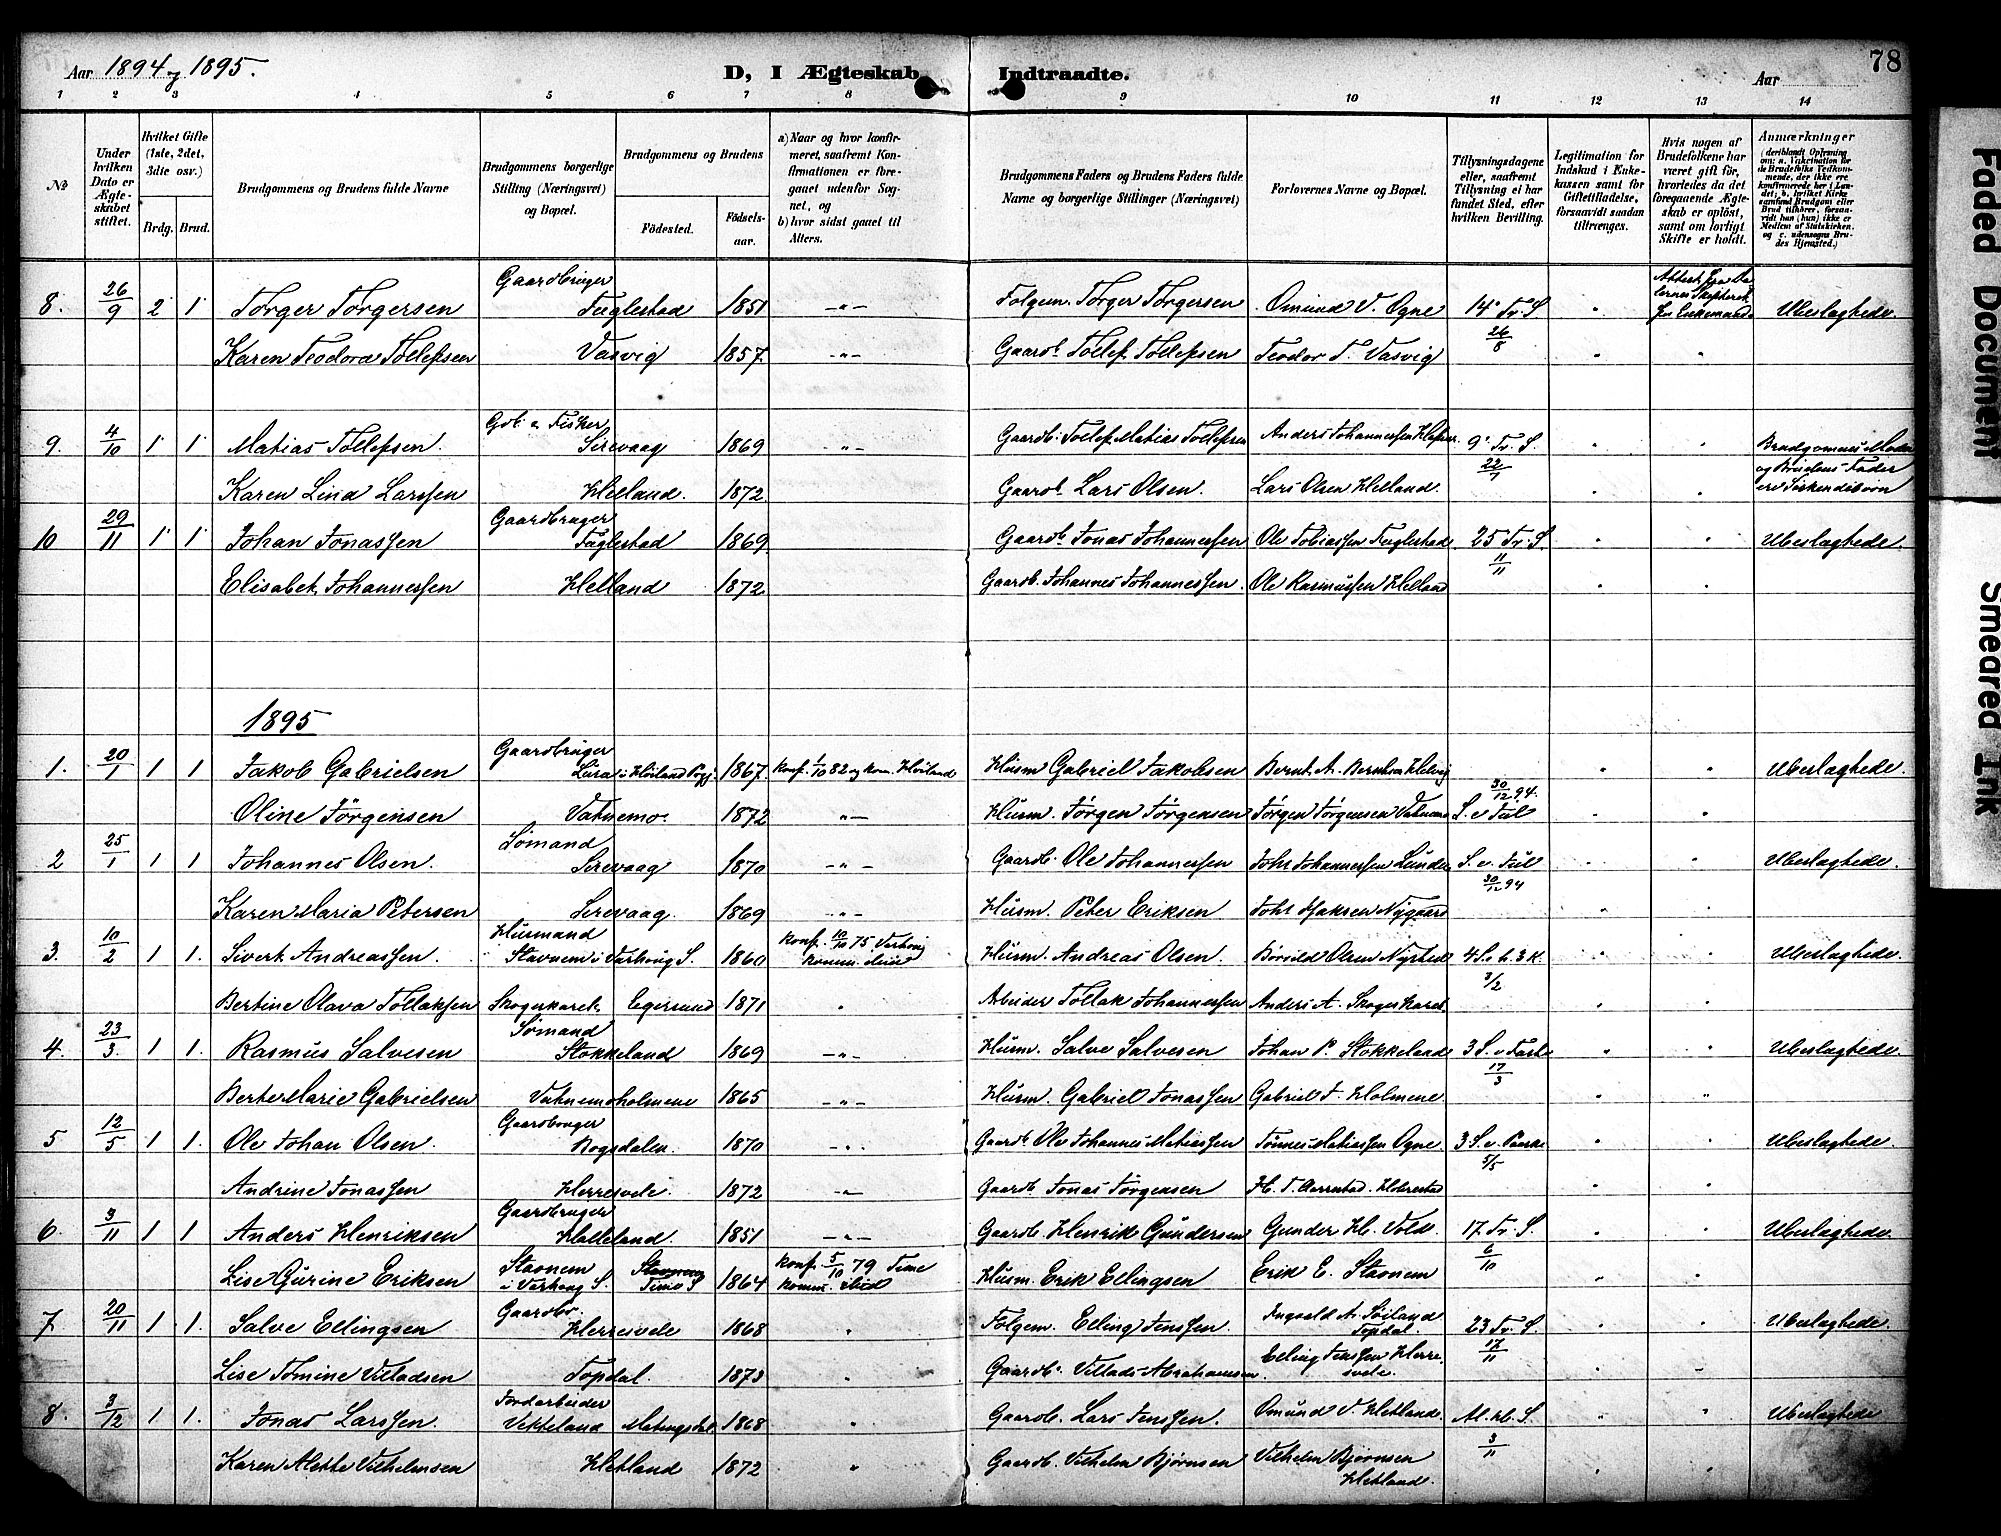 Aar 1894 og 1895.
D, I Ægteskab Indtraadte.
Aar
78
1 2 3 4 5 6 7 8 9 10 11 12 13 14
No
Under hvilken Dato er Ægteskabet stiftet.
Hvilket Gifte (1ste, 2det, 3die osv.)
Brdg. Brud.
Brudgommens og Brudens fulde Navne
Brudgommens borgerlige Stilling (Næringsvei) og Bopæl.
Brudgommens og Brudens
Födested.
Födselsaar.
a) Naar og hvor konfirmeret, saafremt Konfirmationen er foregaaet udenfor Sognet, og
b) hvor sidst gaaet til Alters.
Brudgommens Faders og Brudens Faders fulde Navne og borgerlige Stillinger (Næringsvei)
Forlovernes Navne og Bopæl.
Tillysningsdagene eller, saafremt Tillysning ei har fundet Sted, efter hvilken Bevilling.
Legitimation for Indskud i Enkekassen samt for Giftetilladelse, forsaavidt saadan tiltrænges.
Hvis nogen af Brudefolkene har været gift för, hvorledes da det foregaaende Ægteskab er oplöst, samt om lovligt Skifte er holdt.
Anmærkninger
(deriblandt Oplysning om: a. Vakcination for de Brudefolks Vedkommende, der ikke ere konfirmerede her i Landet; b. hvilket Kirkesamfund Brudgom eller Brud tilhörer, forsaavidt han (hun) ikke er Medlem af Statskirken, og c. udensogns Brudes Hjemsted.)
8. 26/9 2 1 Törger Törgersen Gaardbruger Fuglestad 1851 -"- Folgem. Törger Törgersen Omund V. Ogne 14 Tr. S. 26/8 " Ubeslagtede.
Karen Teodora Tollefsen Vasvig 1857. -"- Gaardb. Tollef Tollefsen Teodor T. Vasvig " "
9. 4/10 1 1 Matias Tollefsen. Gdb. & Fisker Sirevaag 1869 -"- Gaardb. Tollef Matias Tollefsen Anders Johannessen 9 Tr. S. 22/7 " " Brudgommens Moder og Brudens Fader ere Söskendebörn
Karen Lina Larssen Helland. 1872 Gaardb. Lars Olsen. Lars Olsen Helland. " "
10 29/11 1 1 Johan Jonassen Gaardbruger Fuglestad 1869 Gaardb. Jonas Johannessen Ole Tobiassen Fuglestad 25 Tr. S. 11/11 " " Ubeslagtede.
Elisabet Johannessen Helland 1872 Gaardb. Johannes Johannessen. Ole Rasmussen Helland " "
1895
1. 20/1 1 1 Jakob Gabrielsen Gaardbruger Lura i Höiland Pgj. 1867 Konf. 1/10 82 og kom. Höiland Husm. Gabriel Jakobsen Bernt A. " " Ubeslagtede.
Oline Jörgensen Vatnemo. 1872 -"- Husm. Jörgen Jörgensen Jörgen Jörgensen Vatnemo 30/12 94. S. e. Jul " "
2 25/1 1 1 Johannes Olsen. Sömand Sirevaag 1870 -"- Gaardb. Ole Johannessen Johs Johannessen Lunde S. e. Jul 30/12 94 " " Ubeslagtede.
Karen Maria Petersen Sirevaag 1869 -"- Husm. Peter Eriksen Johs Isaksen Nygaard " "
3. 10/2 1 1. Sivert Andreassen. Husmand Stavnem i Varhoug S. 1860 Konf. 10/10 75 Varhoug Komm. ibid Husm. Andreas Olsen. Olsen 4 S. e. h. 3 K. 3/2 " " Ubeslagtede.
Bertine Olava Tollaksen Skogerkaret. Egersund 1871 " Arbeider Tollak Johannessen Anders A. Skogerkaret. " "
4. 23/3. 1 1. Rasmus Salvesen Sömand Stokkeland 1869 -"- Husm. Salve Salvesen Johan P. Stokkeland 3 S. e. Faste 17/3 " " Ubeslagtede
Berte Marie Gabrielsen Vatnemoholmene 1865 -"- Husm. Gabriel Jonassen Gabriel J. Holmene " "
5 12/5 1 1. Ole Johan Olsen. Gaardbruger Rogsdalen. 1870 -". Gaardb. Ole Johannes Matiassen Tönnes Matiassen Ogne 3 S. e. Paaske 5/5 " " Ubeslagtede
Andrine Jonassen Herresvele. 1872 -"- Gaardb. Jonas Jörgensen " "
6. 3/11 1 1 Anders Henriksen Gaardbruger Hælleland. 1851 -"- Gaardb. Henrik Gundersen Gunder H. Vold. 17. Tr. S. 6/10 " " Ubeslagtede.
Lise Gurine Eriksen Stavnem i Varhoug S. Stavnem Time S 1864 Konf. 5/10 79 Time Komm. ibid Husm. Erik Ellingsen Erik E. Stavnem " "
7. 20/11 1 1. Salve Ellingsen Gaardbr. Herresvele 1868 " Folgem. Elling Jenssen. Ingvald A. Söiland Topdal. 23 Tr. S. 17/11 Ubeslagtede.
Lise Tomine Villadsen Topdal. 1873 " Gaardb. Villads Abrahamsen. Elling Jenssen Herresvele. " "
8. 3/12 1 1. Jonas Larssen. Jordarbeider Vekkeland Matingsdal. 1868 " Gaardb. Lars Jenssen. Omund V. Hetland. Al. H. S. 3/11 " " Ubeslagtede
Karen Alette Vilhelmsen Hetland 1872 " Gaardb. Vilhelm Bjørnsen Vilhelm Bjørnsen Hetland. " "
Faded Document
Smeared Ink